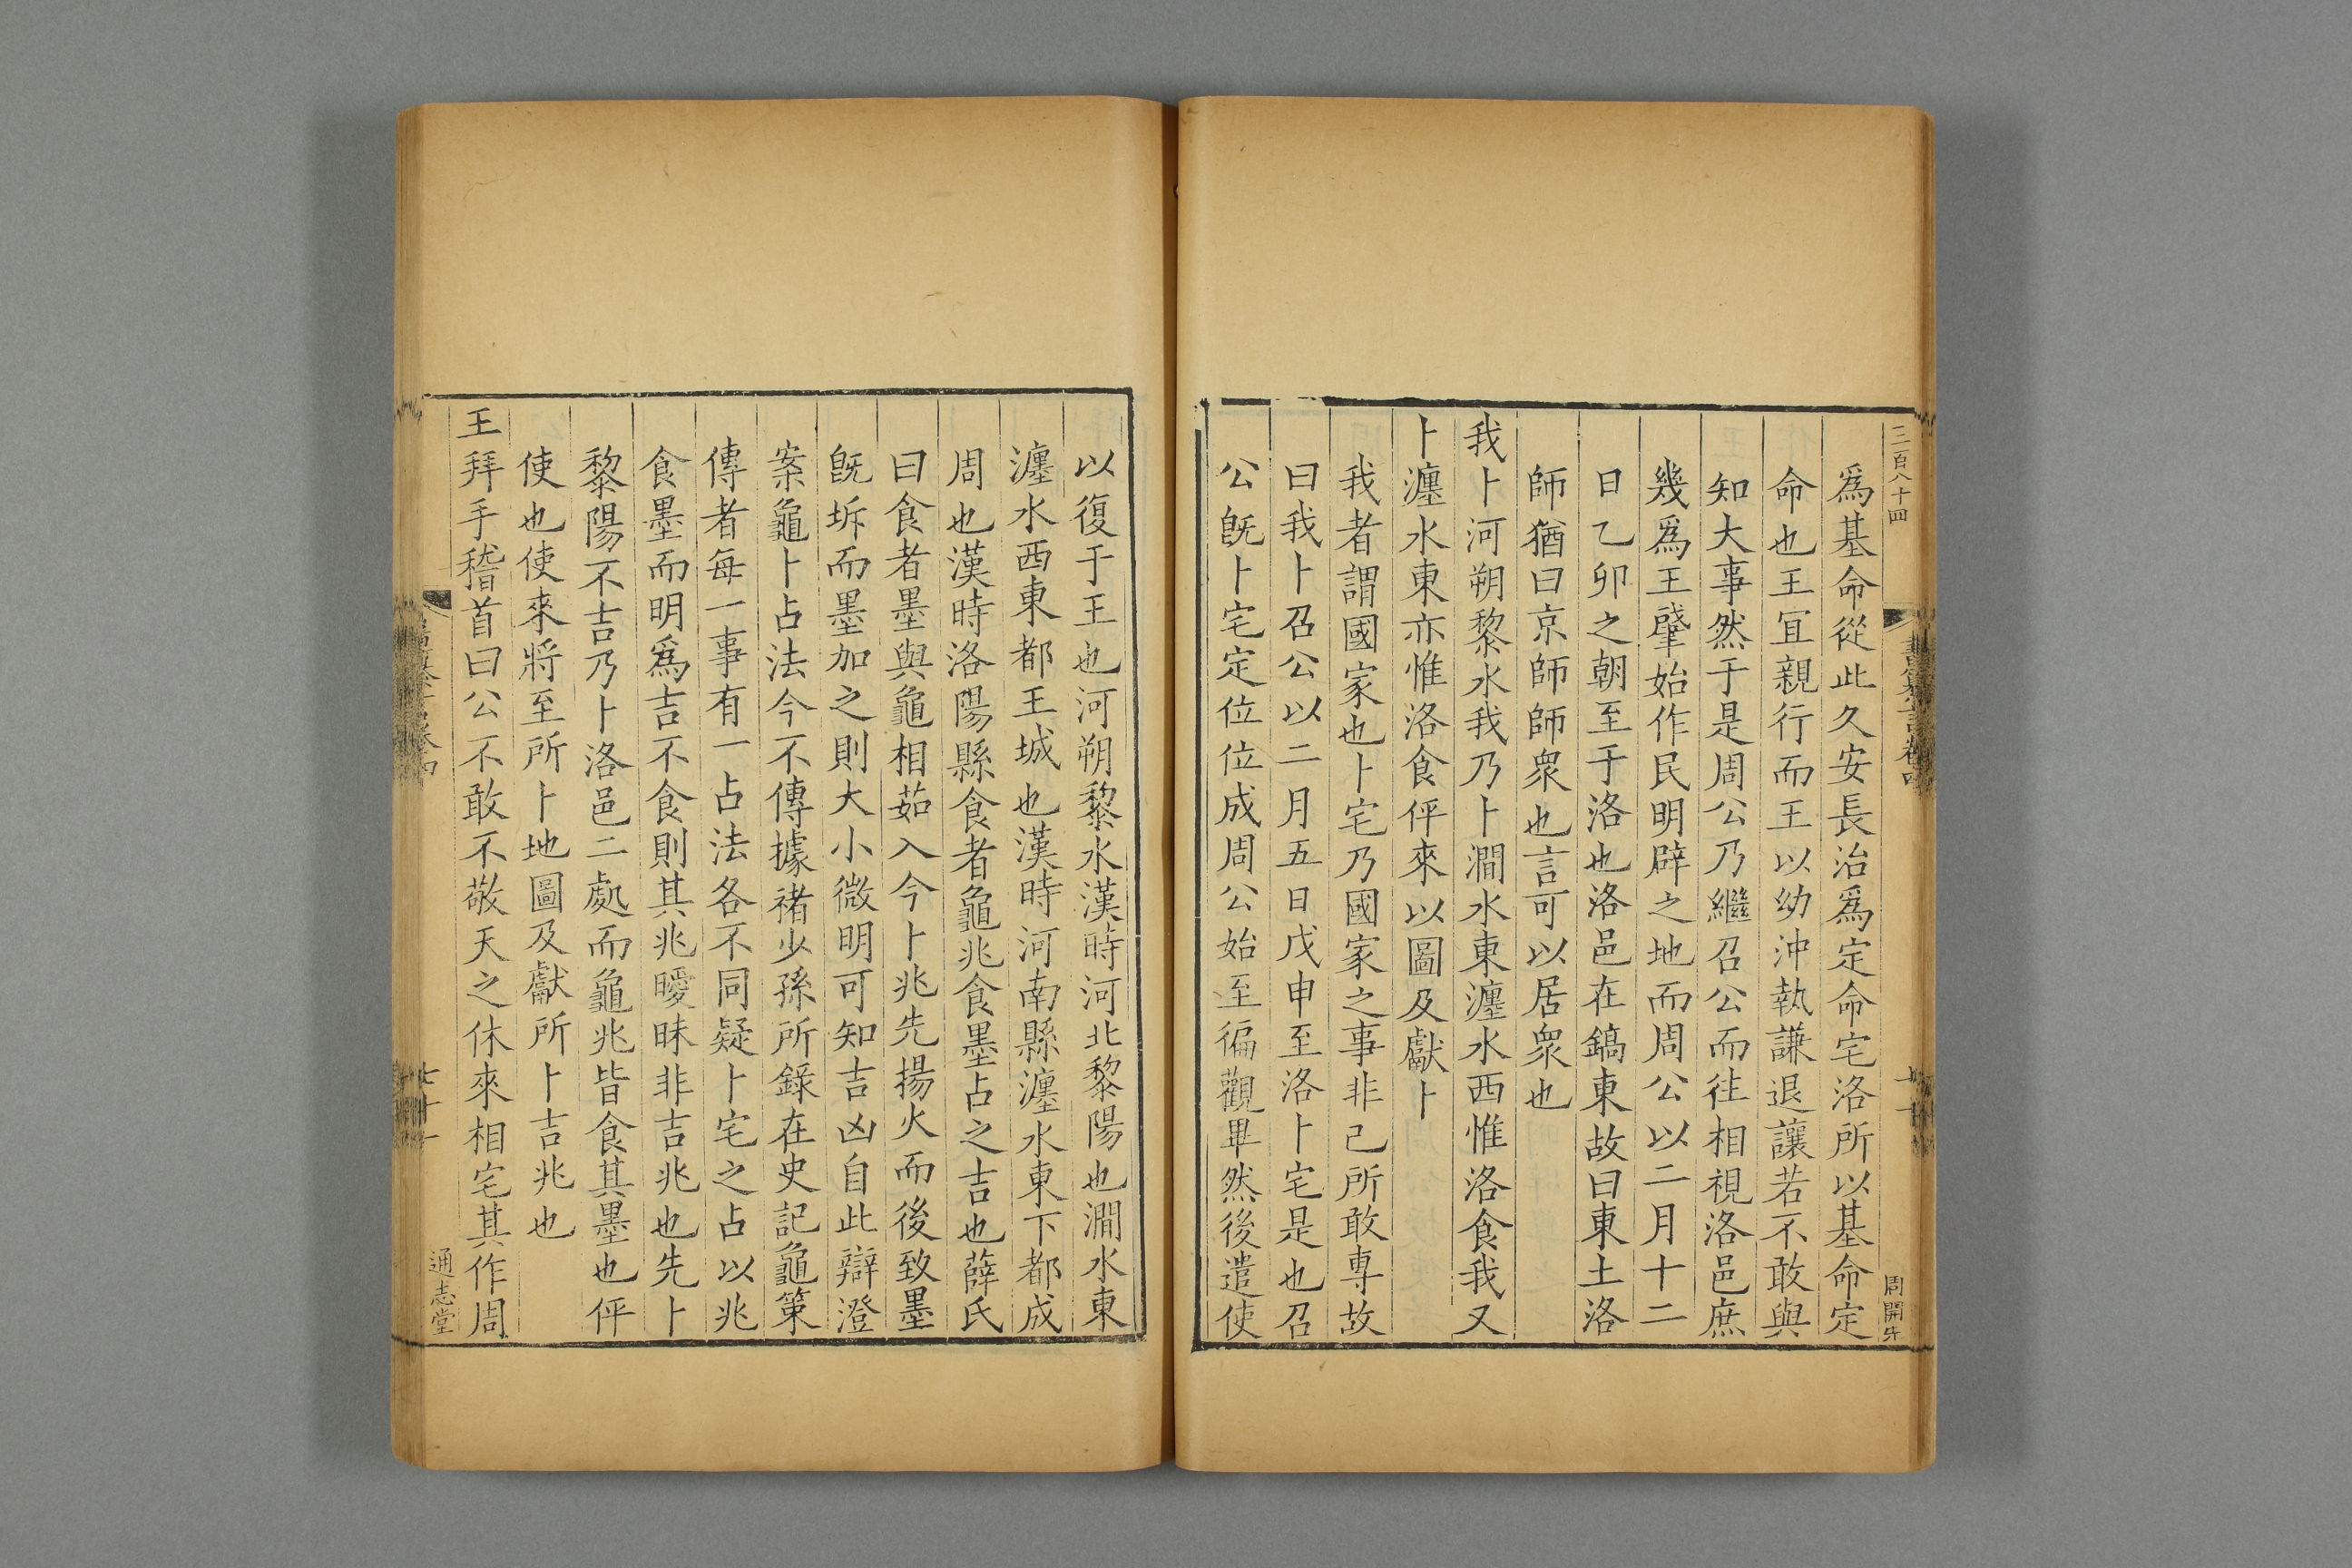 三百八十四
周開先
爲基命從此久安長治爲定命宅洛所以基命定
命也王宜親行而王以幼沖執謙退讓若不敢與
知大事然于是周公乃繼召公而往相視洛邑庶
幾爲王肇始作民明辟之地而周公以二月十二
日乙卯之朝至于洛也洛邑在鎬東故曰東土洛
師猶曰京師師衆也言可以居衆也
我卜河朔黎水我乃卜澗水東瀍水西惟洛食我又
卜瀍水東亦惟洛食伻來以圖及獻卜
我者謂國家也卜宅乃國家之事非己所敢專故
曰我卜召公以二月五日戊申至洛卜宅是也召
公旣卜宅定位位成周公始至徧觀畢然後遣使
以復于王也河朔黎水漢時河北黎陽也澗水東
瀍水西東都王城也漢時河南縣瀍水東下都成
周也漢時洛陽縣食者龜兆食墨占之吉也薛氏
曰食者墨與龜相茹入今卜兆先揚火而後致墨
旣坼而墨加之則大小微明可知吉凶自此辯澄
案龜卜占法今不傳據褚少孫所錄在史記龜筴
傳者每一事有一占法各不同疑卜宅之占以兆
食墨而明爲吉不食則其兆曖昧非吉兆也先卜
黎陽不吉乃卜洛邑二處而龜兆皆食其墨也伻
使也使來將至所卜地圖及獻所卜吉兆也
王拜手稽首曰公不敢不敬天之休來相宅其作周
通志堂